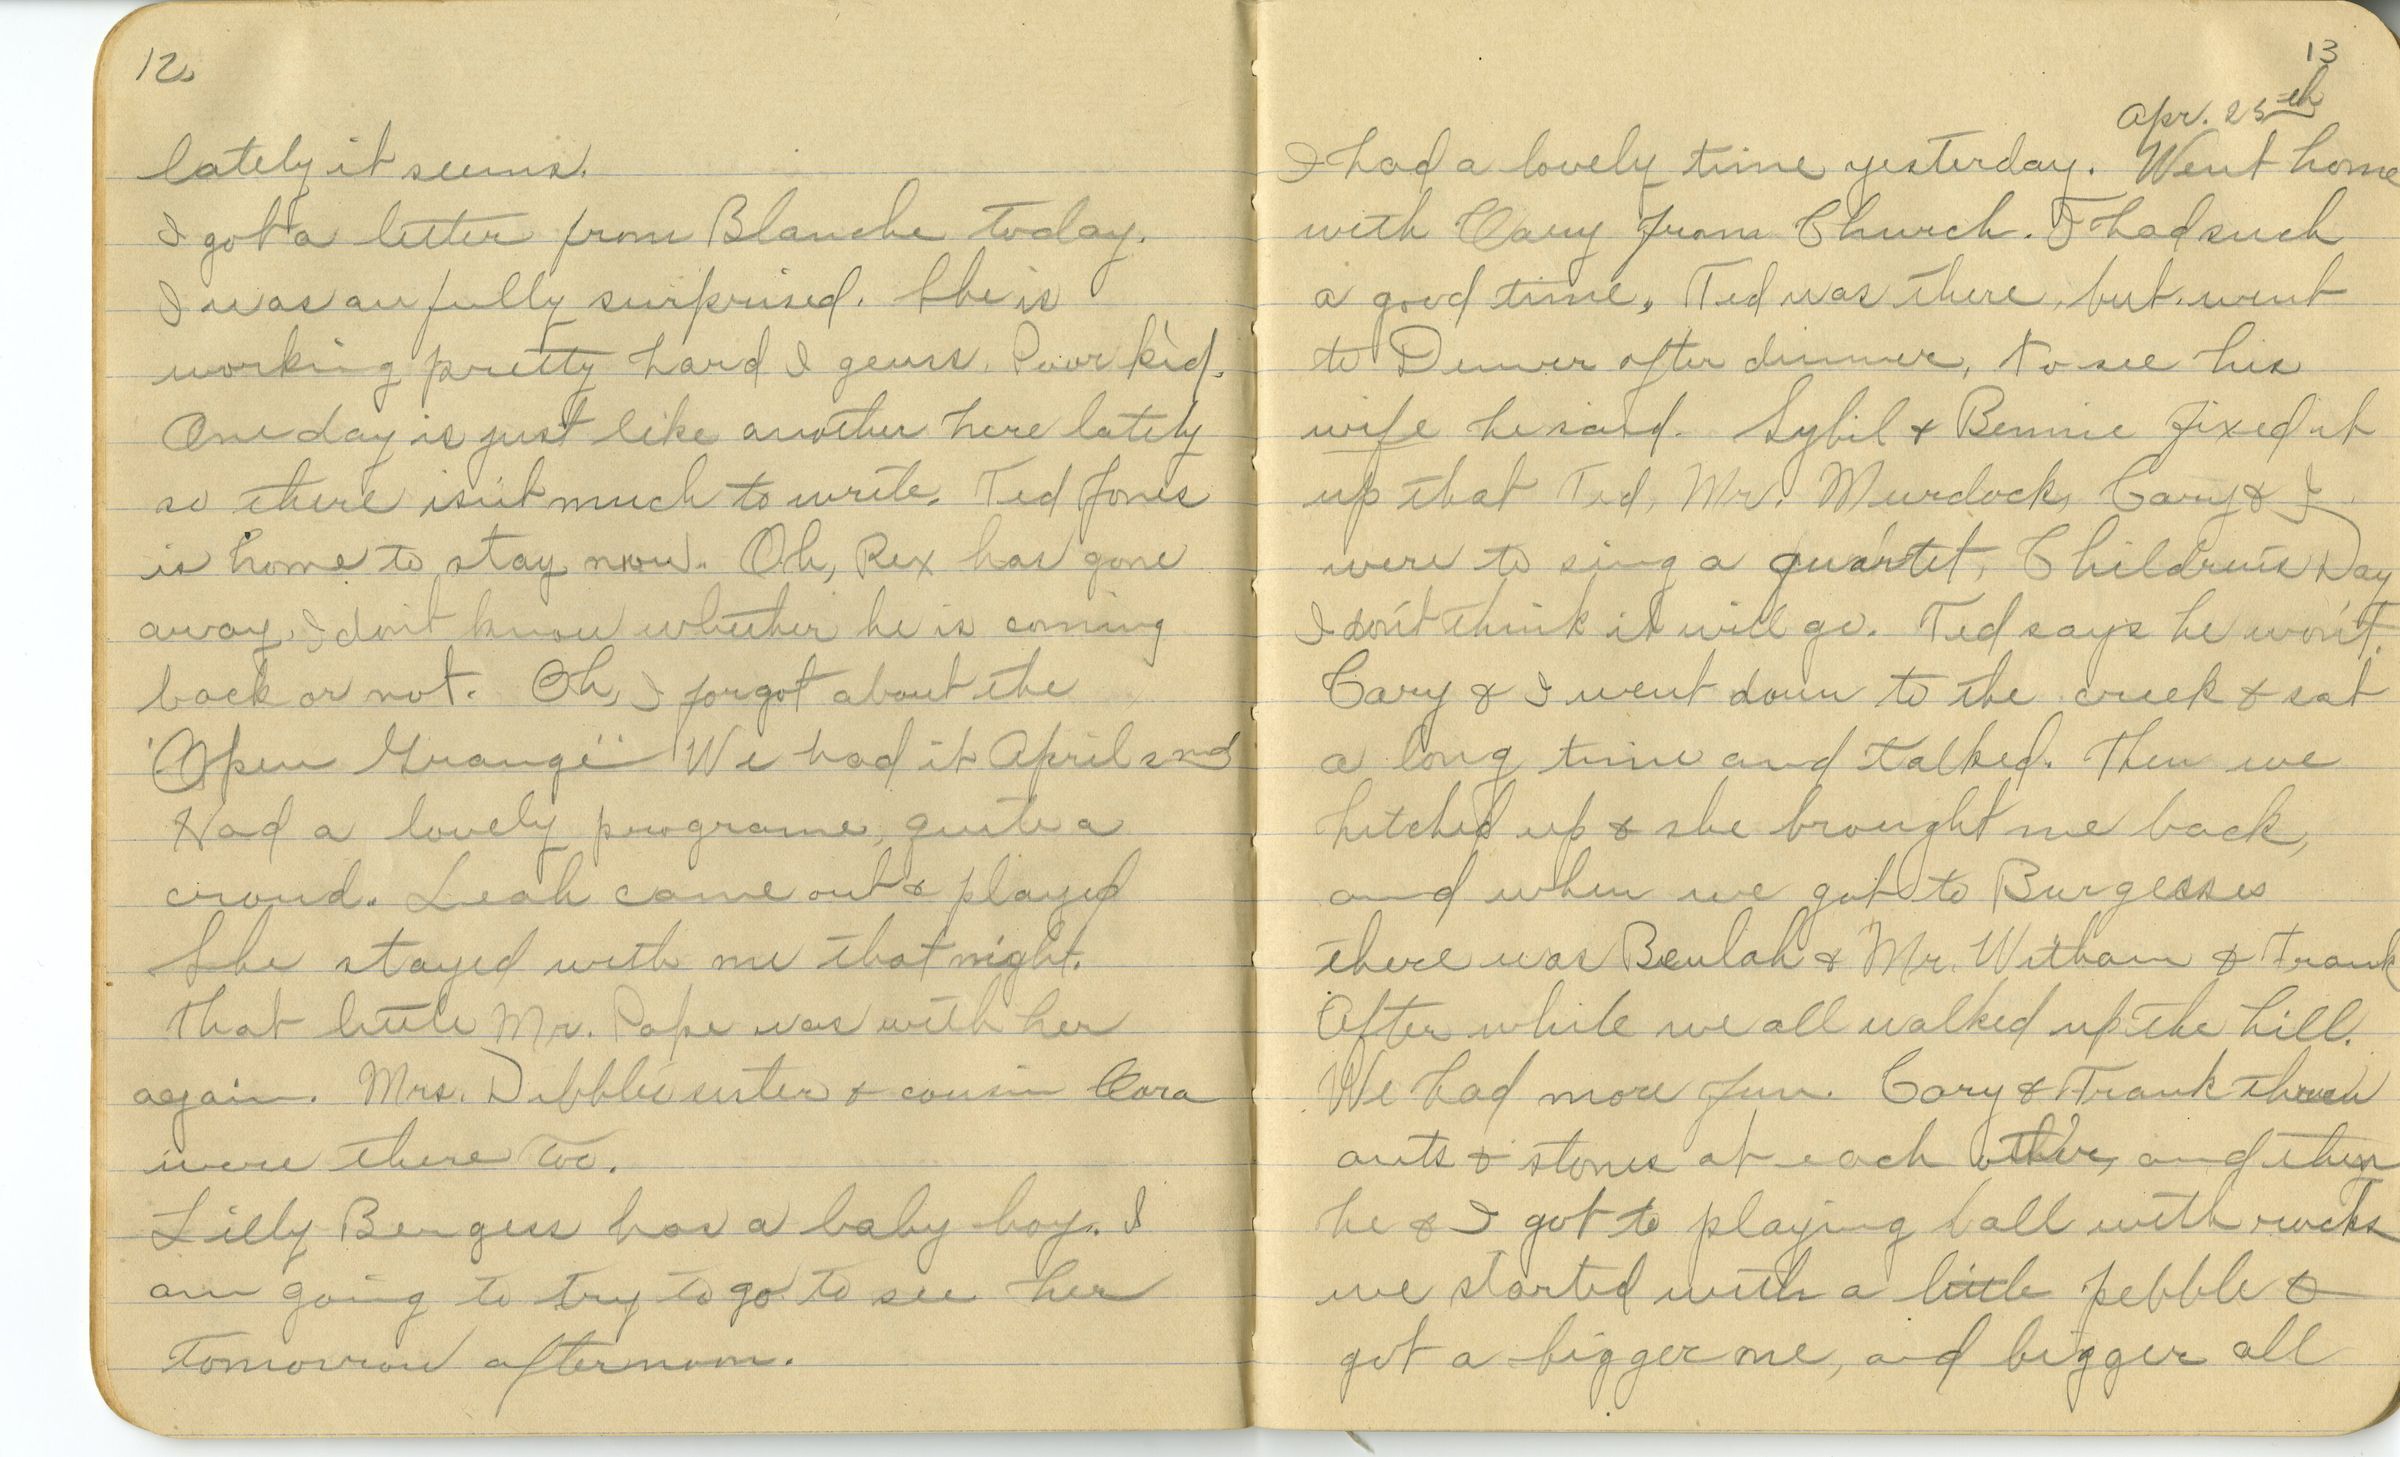 12.
lately it seems.
I got a letter from Blanche today.
I was awfully surprised. She is
working pretty hard I geuss. Poor kid.
One day is just like another here lately
so there isn't much to write. Ted Jones
is home to stay now. Oh, Rex has gone
away, I don't know whether he is coming
back or not. Oh, I forgot about the
"Open Grange" We had it April 2nd
Had a lovely programe, quite a
crowd. Leah came out & played
She stayed with me that night.
That little Mr. Pape was with her
again. Mrs. Dibbles sister & cousin Cora
were there too.
Lilly Burgess has a baby boy. I
am going to try to go to see her
tomorrow afternoon.
13
Apr. 25th
I had a lovely time yesterday. Went home
with Cary from Church. I had such
a good time, Ted was there, but went
to Denver after dinner, to see his
wife he said. Sybil & Bennie fixed it
up that Ted, Mr. Murdock, Cary & I
were to sing a quartet, Children's Day
I don't think it will go. Ted says he won't.
Cary & I went down to the creek & sat
a long time and talked. Then we
hitched up & she brought me back,
and when we got to Burgesses
there was Beulah & Mr. Witham & Frank
After while we all walked up the hill.
We had more fun. Cary & Frank threw
ants & stones at each other, and then
he & I got to playing ball with rocks
we started with a little pebble &
got a bigger one, and bigger all